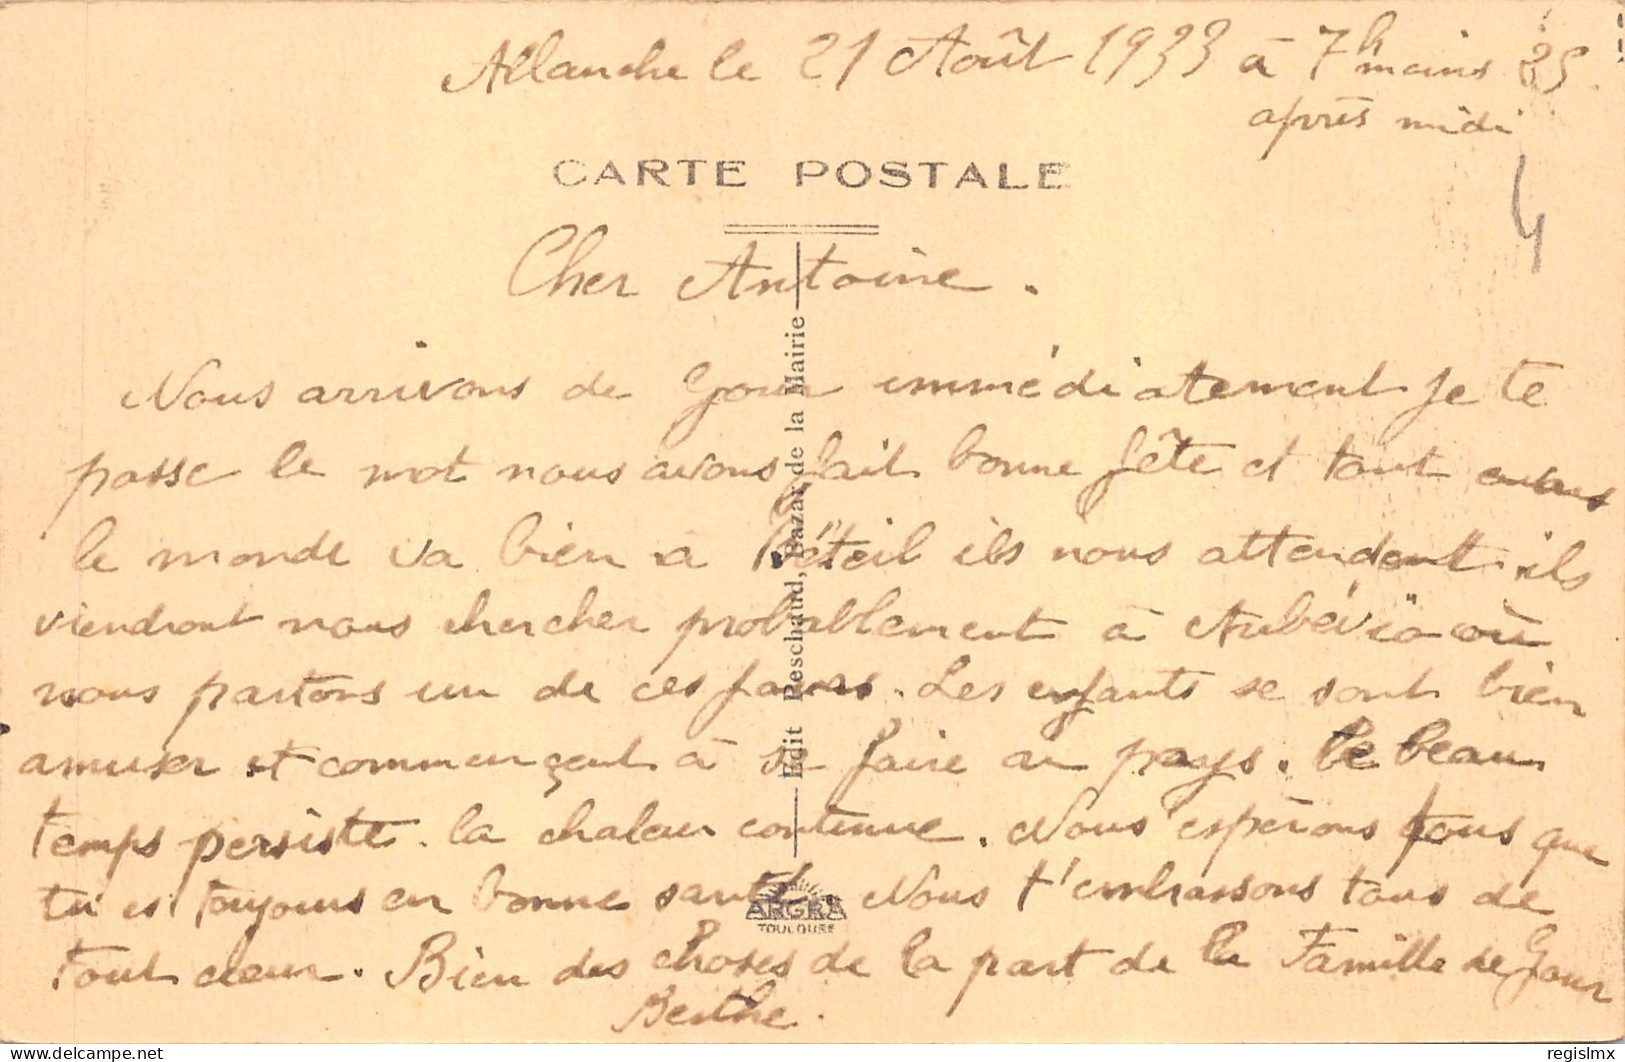 Allanche le 21 Août 1933 à 7h moins 25
après midi
4
CARTE POSTALE
Cher Antoine.
Nous arrivons de Gour immédiatement je te
passe le mot nous avons fait bonne fête et tout
le monde va bien a Béteil ils nous attendent ils
viendront nous chercher probablement à Aubévio où
nous partons un de ces jours. Les enfants se sont bien
amuser et commençent à se faire au pays. Le beau
temps persiste. la chaleur continue. Nous espérons tous que
tu es toujours en bonne santé. Nous t'embrassons tous de
tout cœur. Bien des choses de la part de la Famille de Gour
Berthe.
Edit Peschaud, Bazar de la Mairie
ARGRA
TOULOUSE
regislmx